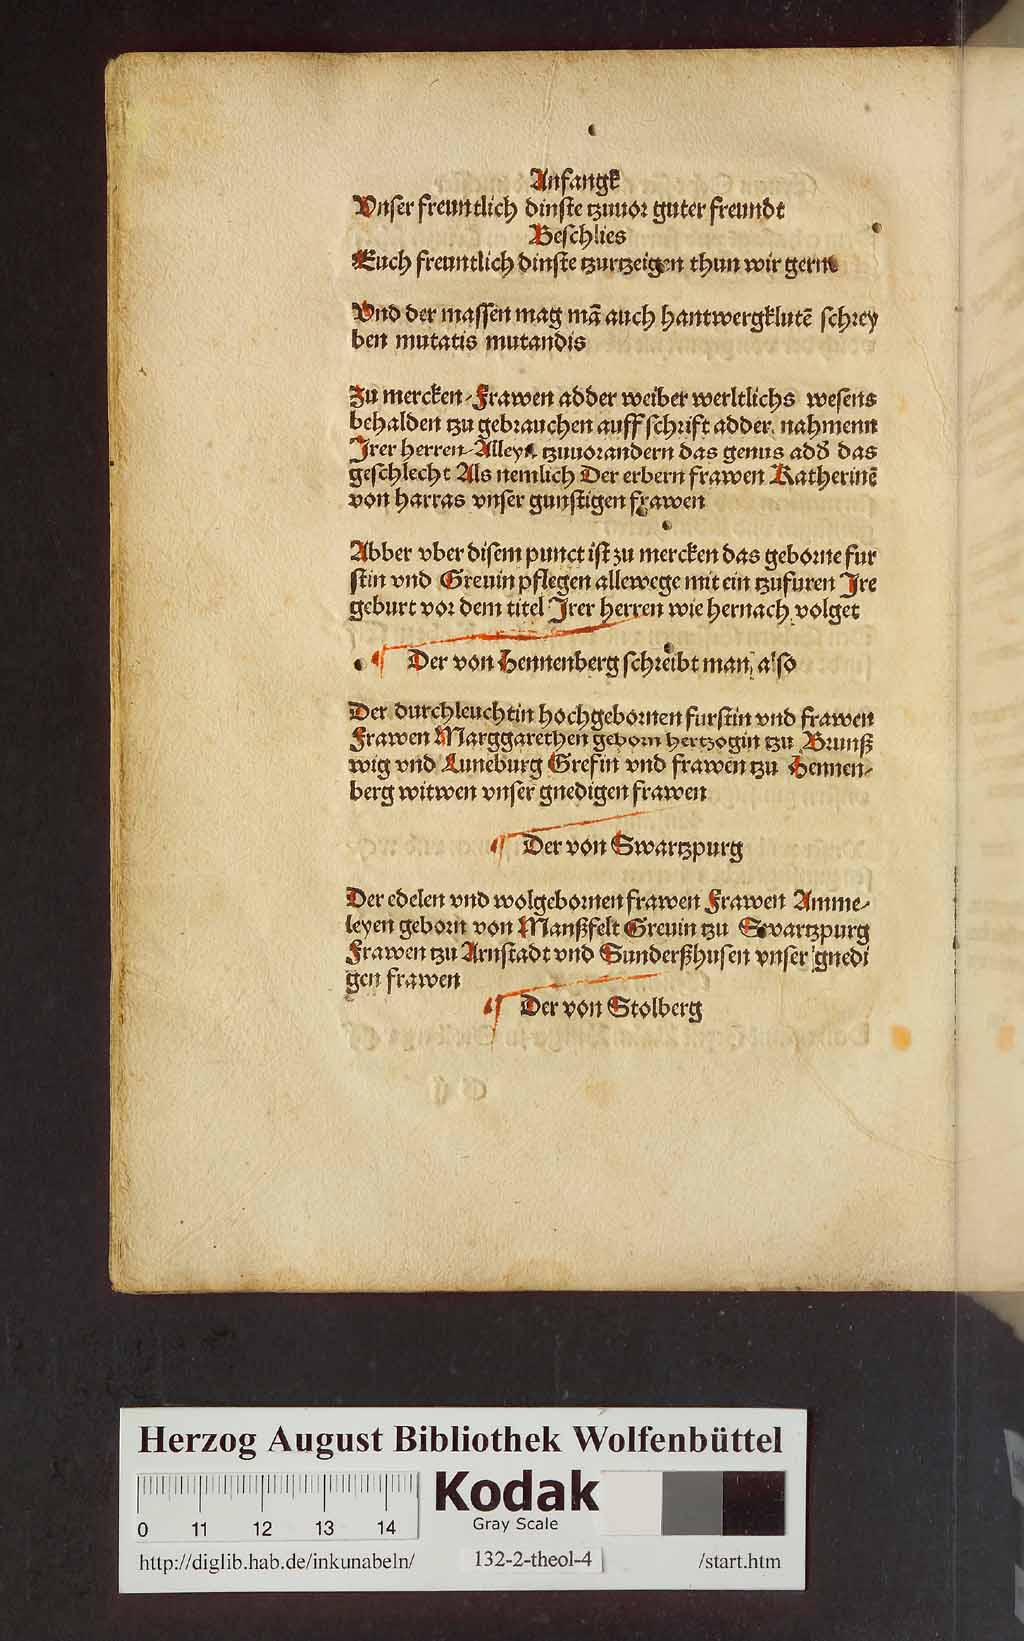 Anfangk
Vnser freuntlich dinste tzuuor guter freundt
Beschlies
Euch freuntlich dinste tzurtzeigen thun wir gern
Vnd der massen mag mā auch hantwergklutē schrey
ben mutatis mutandis
Zu mercken/ Frawen adder weiber werltlichs wesens
behalden tzu gebrauchen auff schrift adder nahmenn
Irer herren/ Alleyn tzuuorandern das genus add' das
geschlecht Als nemlich Der erbern frawen Katherinē
von harras vnser gunstigen frawen
Abber vber disem punct ist zu mercken das geborne fur
stin vnd Greuin pflegen allewege mit ein tzufuren Ire
geburt vor dem titel Irer herren wie hernach volget
¶ Der von Hennenberg schreibt man also
Der durchleuchtin hochgebornen furstin vnd frawen
Frawen Marggarethen geborn hertzogin tzu Brunß
wig vnd Luneburg Grefin vnd frawen tzu Hennen/
berg witwen vnser gnedigen frawen
¶ Der von Swartzpurg
Der edelen vnd wolgebornen frawen Frawen Amme/
leyen geborn von Manßfelt Greuin tzu Swartzpurg
Frawen tzu Arnstadt vnd Sunderßhusen vnser gnedi
gen frawen
¶ Der von Stolberg
Herzog August Bibliothek Wolfenbüttel
Kodak
Gray Scale
0 11 12 13 14
http://diglib.hab.de/inkunabeln/ 132-2-theol-4 /start.htm